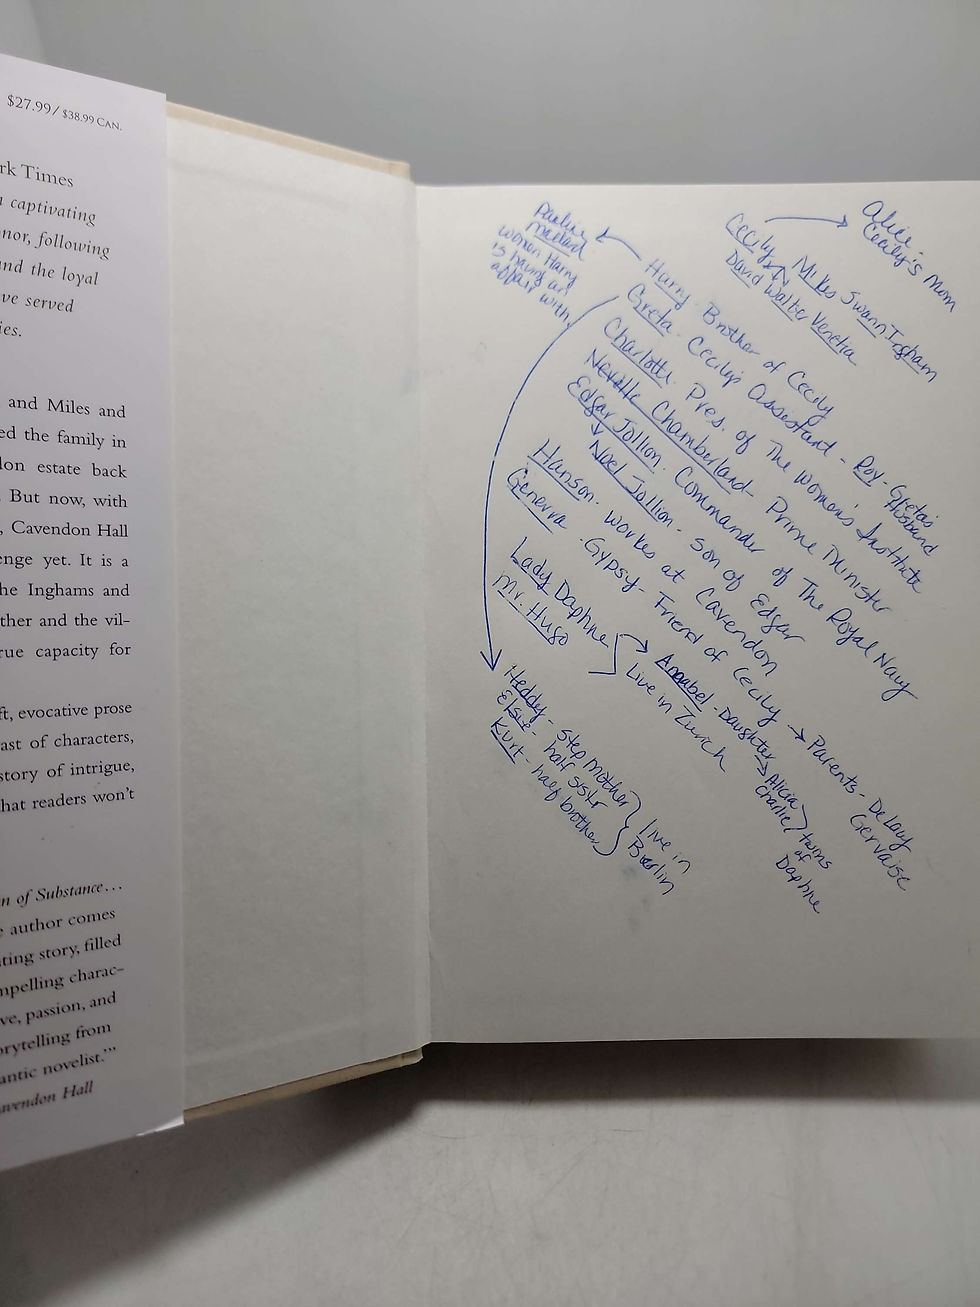 $27.99/ $38.99 CAN.
rk Times
captivating
nor, following
nd the loyal
ve served
ies.
and Miles and
ed the family in
don estate back
But now, with
, Cavendon Hall
enge yet. It is a
he Inghams and
ther and the vil-
rue capacity for
ft, evocative prose
ast of characters,
story of intrigue,
hat readers won't
n of Substance...
author comes
ting story, filled
mpelling charac-
ve, passion, and
orytelling from
antic novelist.'"
avendon Hall
Alice -
Cecily's mom
Cecily Miles Swann Ingham
David Walter Venetia
Pauline
women Harry
is having an
affair with
Harry - Brother of Cecily
Greta - Cecily's Assistant - Roy - Greta's
Husband
Charlotte - Pres. of The Women's Institute
Neville Chamberland - Prime Minister
Edgar Jollion - Commander of The Royal Navy
Noel Jollion - son of Edgar
Hanson - workes at Cavendon
Generva - Gypsy - Friend of Cecily → Parents - De Lacy
Gervaise
Lady Daphne
Mr. Hugo
Live in Zurich
Annabel - Daughter
Alicia
Charlie
twins
of
Daphne
Heddy - step mother
Elsie - half sister
Kurt - half brother
live in
Berlin